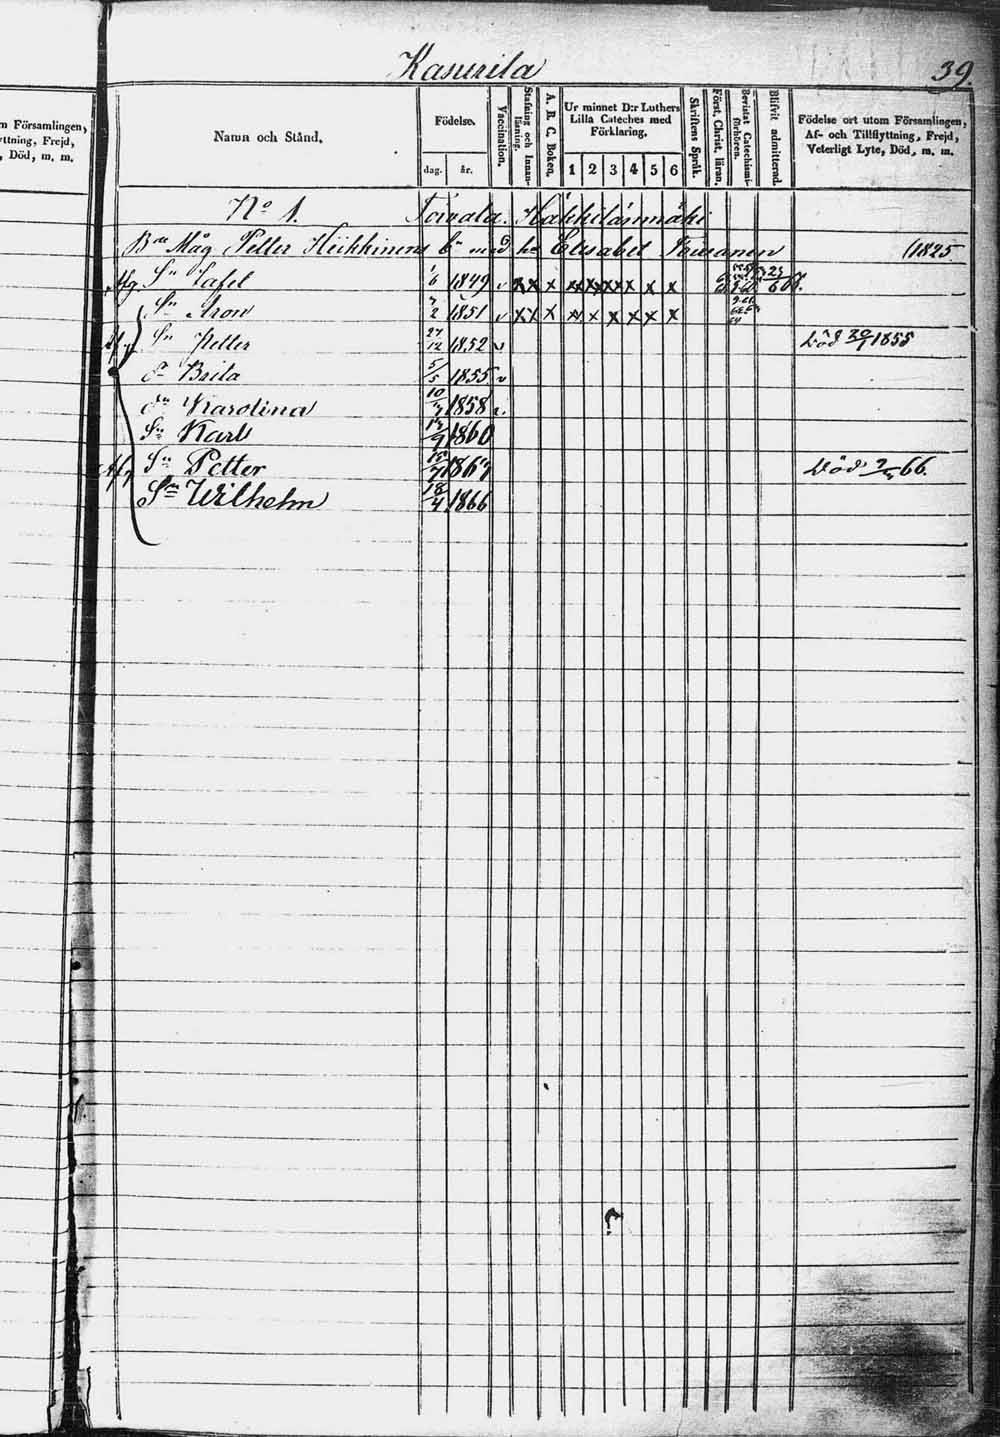 Kasurila
39.
m Församlingen,
yttning, Frejd,
, Död, m. m.
Namn och Stånd.
Födelse.
dag. år.
Vaccination.
Stafning och Innan-
läsning.
A. B. C. Boken.
Ur minnet D:r Luthers
Lilla Cateches med
Förklaring.
1 2 3 4 5 6
Skriftens Språk.
Först. Christ. läran.
Bevistat Catechismi-
förhören.
Blifvit admitterad.
Födelse ort utom Församlingen,
Af- och Tillflyttning, Frejd,
Veterligt Lyte, Död, m. m.
No 1. Toivala. Häkkilänmäki
Bde Måg Petter Heikkinens bn med hu Elisabet (1825.
Afg. Sn Tafel 1/6 1849 v x x x x x x x x x
Sn Aron 7/2 1851 v x x x x x x x x x
Sn Petter 27/12 1852 v Död 20/7 1855
Dr Brita 5/5 1855 v
Dr Karolina 1858 v.
Sn Karl 1860
Sn Petter Död 66.
Sn Wilhelm 18/4 1866